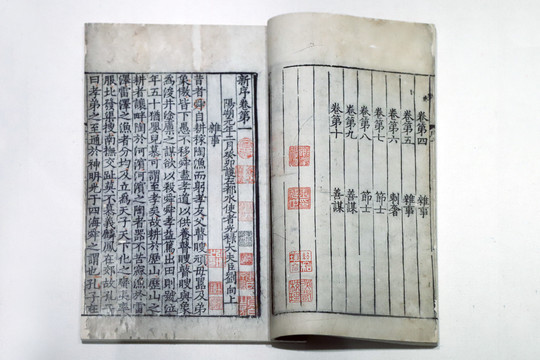 卷第四 雜事
卷第五 雜事
卷第六 刺奢
卷第七 節士
卷第八 節士
卷第九 善謀
卷第十 善謀
新序卷第一
陽朔元年二月癸卯護左都水使者光祿大夫臣劉向上
雜事
昔者舜自耕稼陶漁而躬孝友父瞽瞍頑母嚚及弟
象傲皆下愚不移舜盡孝道以供養瞽瞍瞽瞍與象
為浚井塗廩之謀欲以殺舜舜孝益篤出田則號泣
年五十猶嬰兒慕可謂至孝矣故耕於歷山歷山之
耕者讓畔陶於河濱河濱之陶者器不苦窳漁於雷
澤雷澤之漁者分均及立為天子天下化之蠻夷率
服北發渠搜南撫交阯莫不慕義麟鳳在郊故孔子
曰孝弟之至通於神明光于四海舜之謂也孔子在